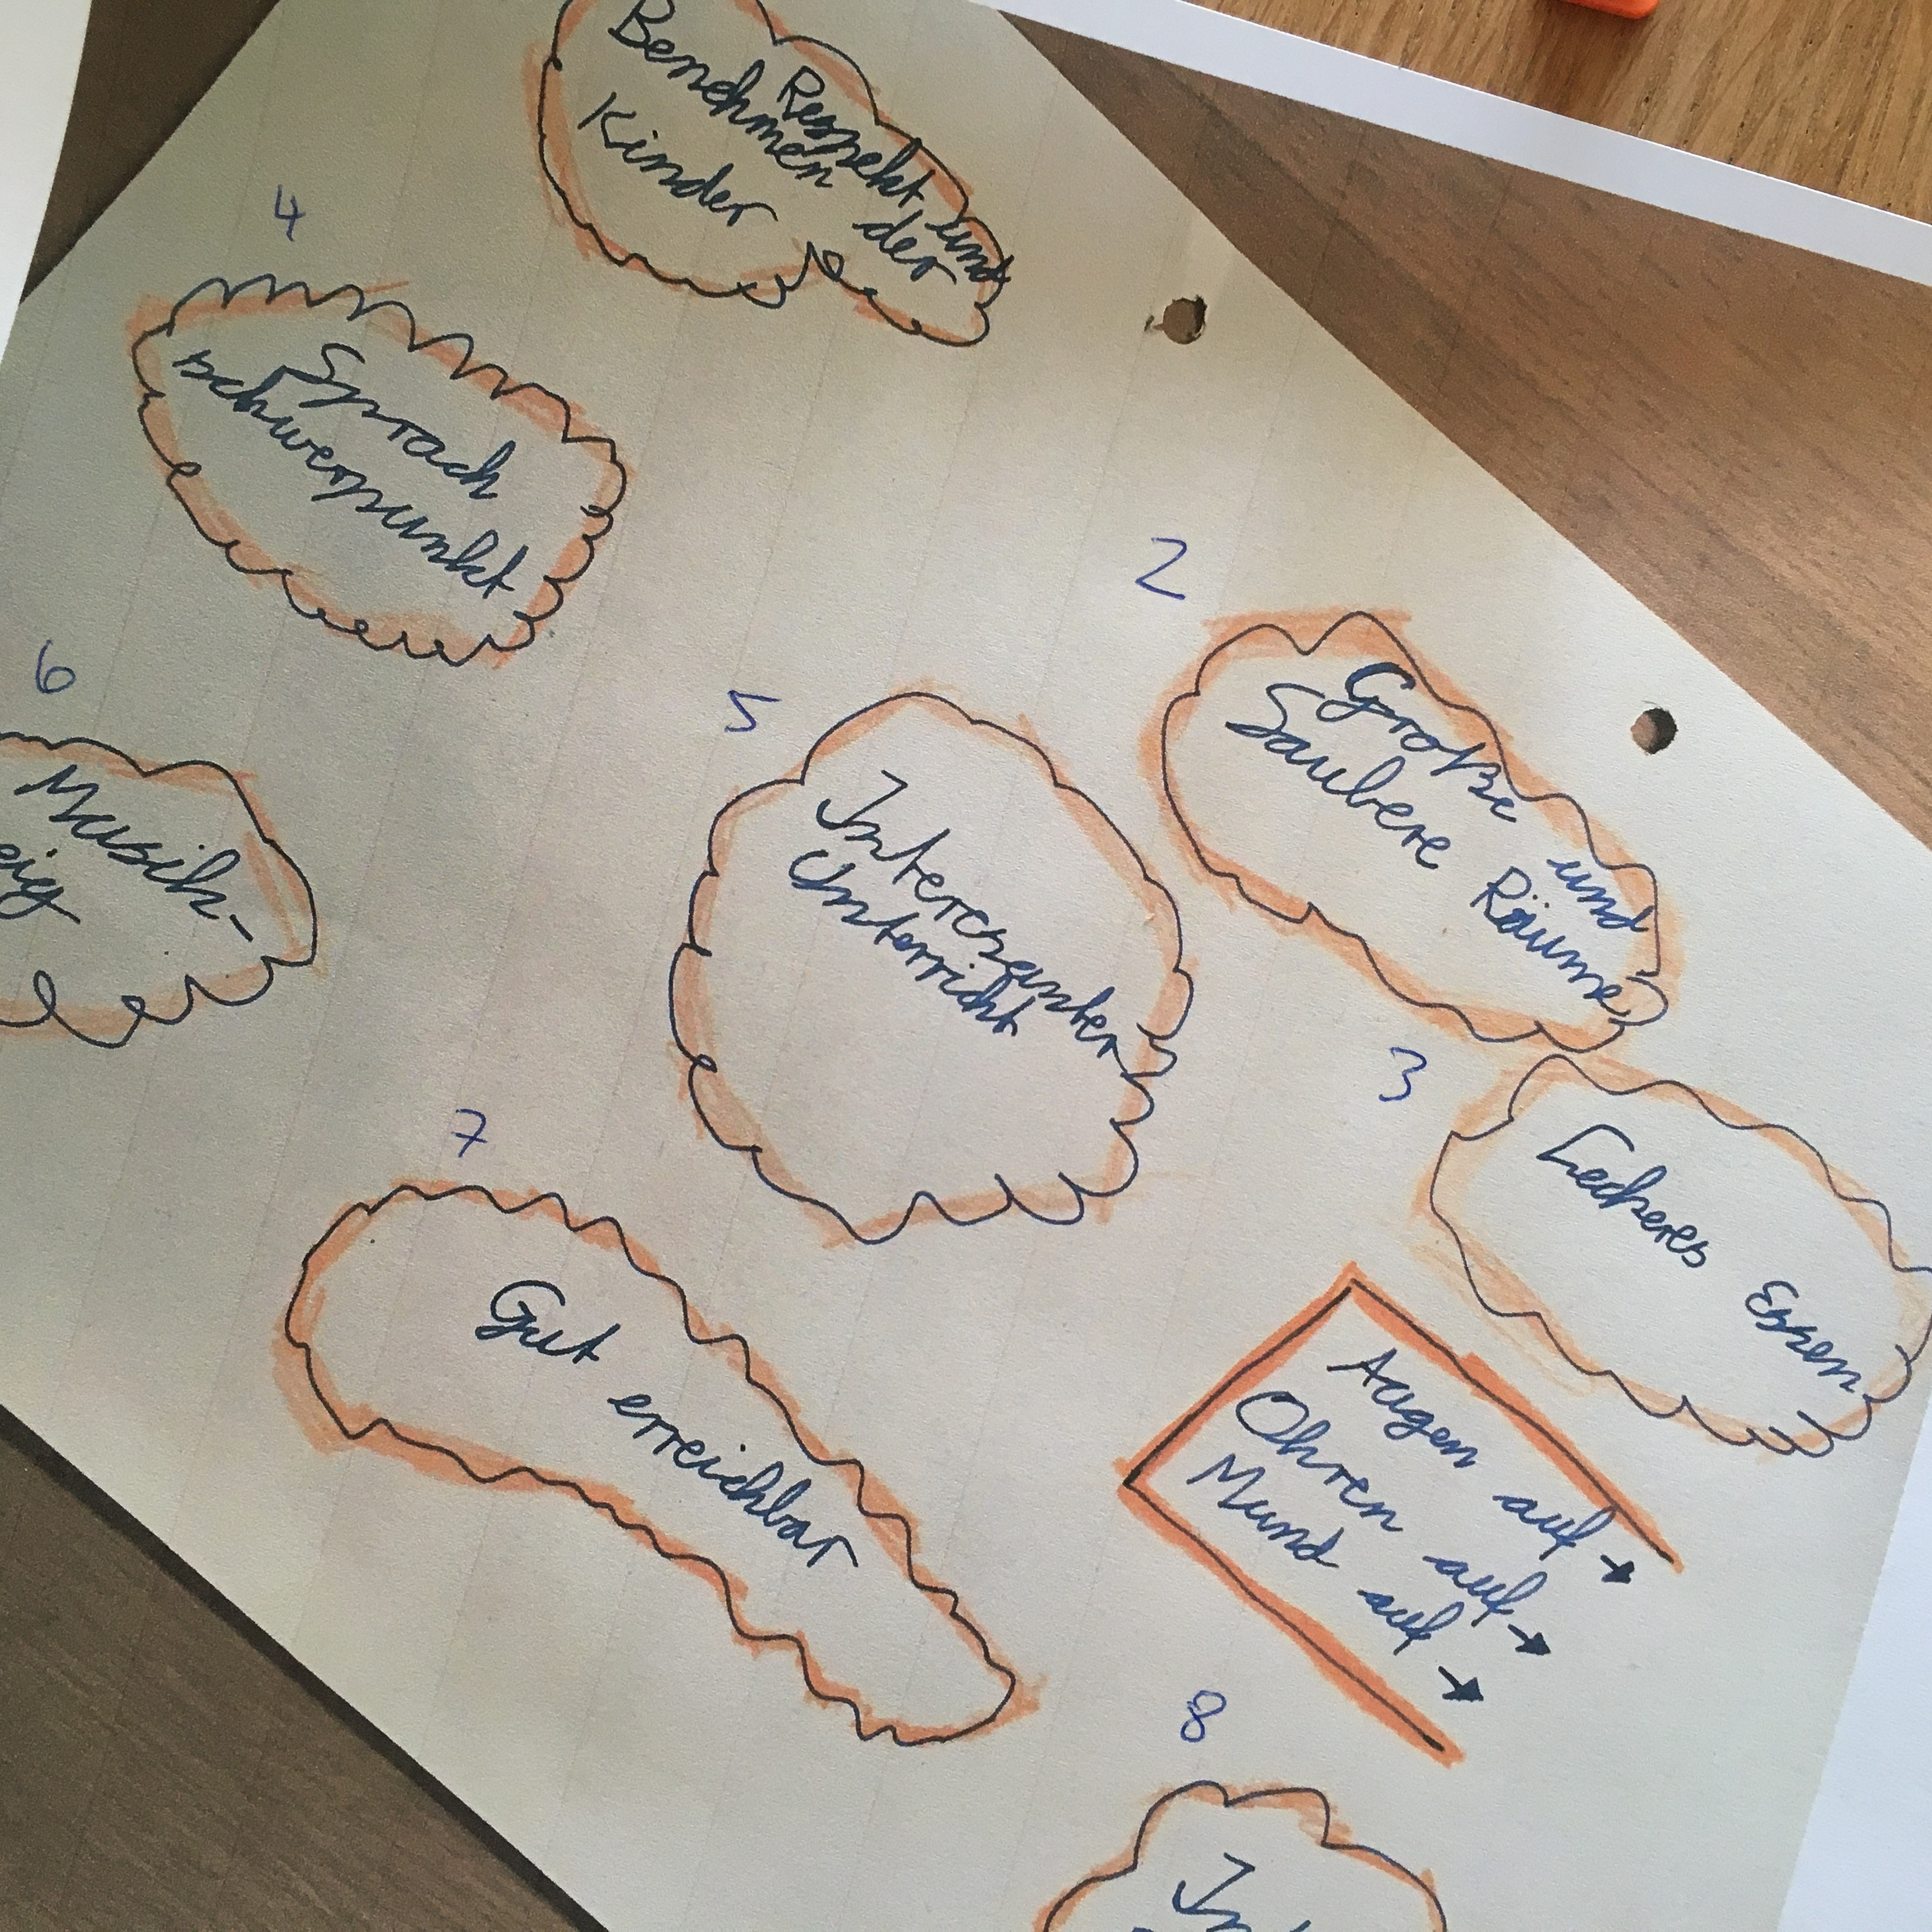 Respekt und
Benehmen der
Kinder
4
Sprach
schwerpunkt
2
Große und
Saubere Räume
6
Musik-
5
Interesanter
Unterricht
3
Leckeres Essen
7
Gut erreichbar
Augen auf →
Ohren auf →
Mund auf →
8